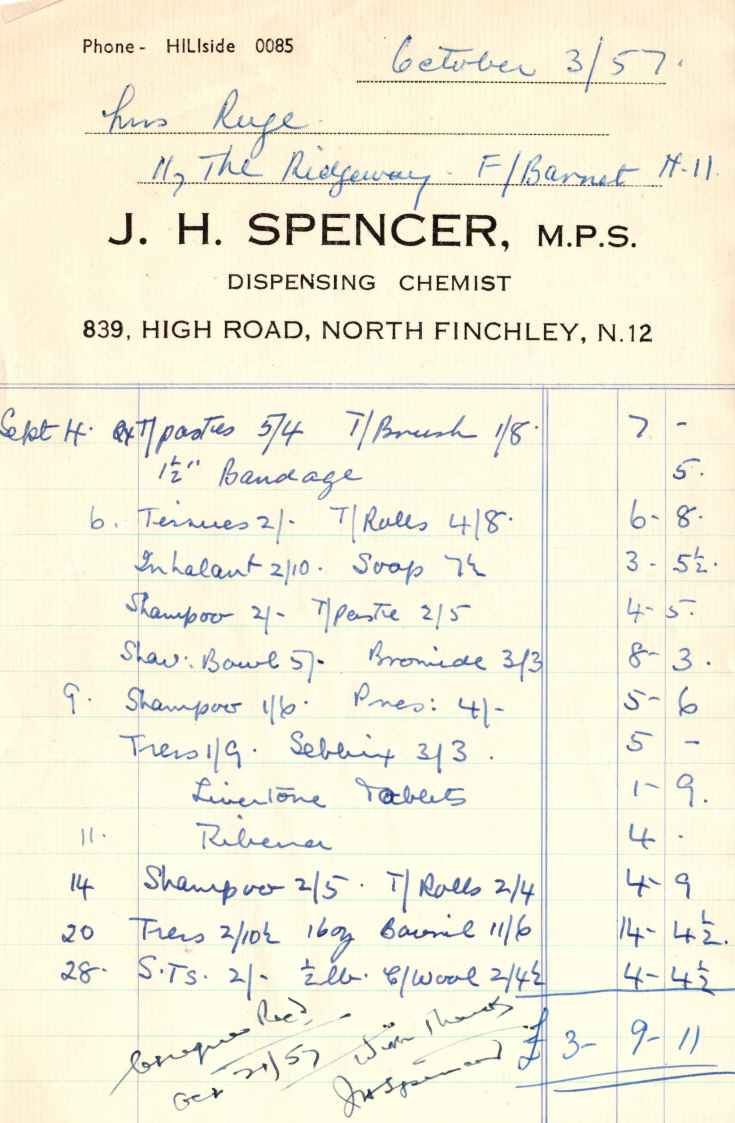 Phone - HILlside 0085
October 3/57.
Mrs Ruge.
11, The Ridgeway. F/Barnet N.11.
J. H. SPENCER, M.P.S.
DISPENSING CHEMIST
839, HIGH ROAD, NORTH FINCHLEY, N.12
Sept 4. 2x T/pastes 5/4 T/Brush 1/8. 7 -
1½" Bandage 5.
6. Tissues 2/- T/Rolls 4/8. 6- 8.
Inhalant 2/10. Soap 7½ 3 - 5½.
Shampoo 2/- T/paste 2/5 4- 5.
Shav: Bowl 5/- Bromide 3/3 8- 3.
9. Shampoo 1/6. Pres: 4/- 5- 6
Tress 1/9. Sebbix 3/3. 5 -
Livertone Tablets 1- 9.
11. Ribena 4.
14 Shampoo 2/5. T/Rolls 2/4 4- 9
20 Tress 2/10½ 16oz Bovril 11/6 14- 4½.
28. S.Ts. 2/- ½lb. C/Wool 2/4½ 4- 4½
£ 3- 9- 11
Cheque Recd With Thanks
Oct 21/57 JHSpencer